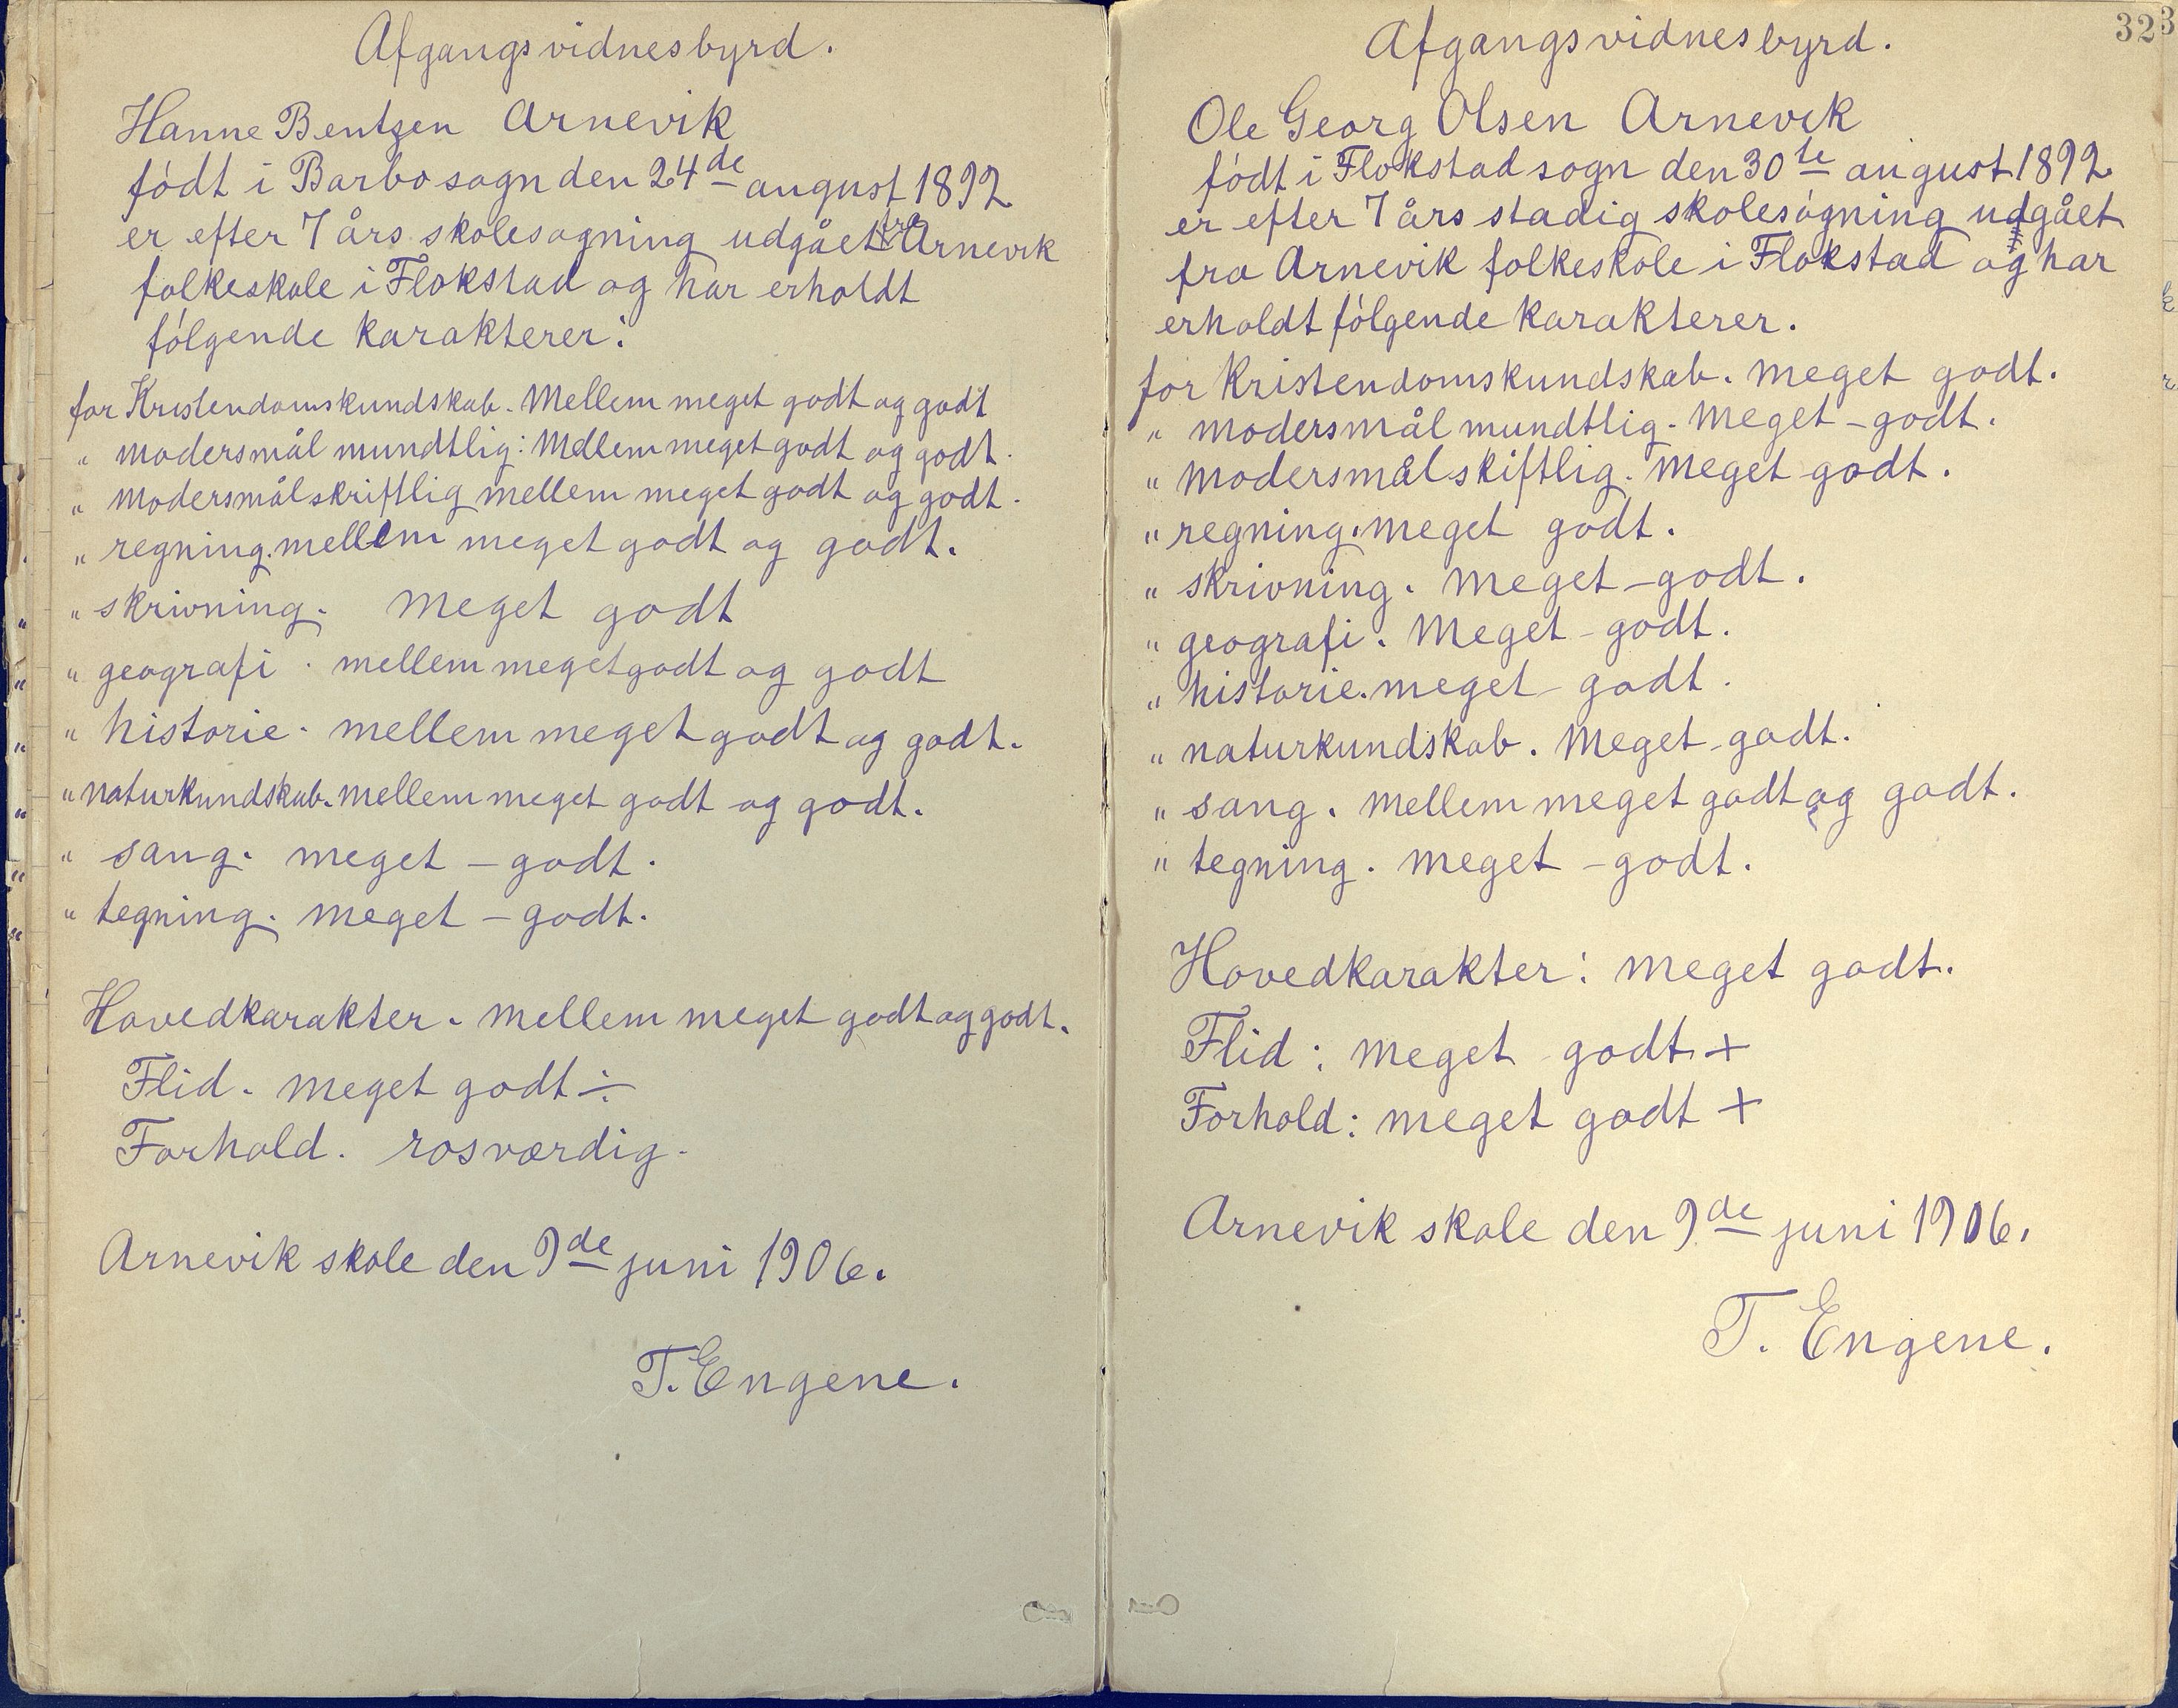 Afgangsvidnesbyrd.
Hanne Bentzen Arnevik
födt i Barbo sogn den 24de august 1892
er efter 7 års skolesøgning udgået fra Arnevik
folkeskole i Flokstad og har erholdt
fólgende karakterer:
for Kristendomskundskab. Mellem meget godt og godt
" modersmål mundtlig: Mellem meget godt og godt.
" modersmål skriftlig mellem meget godt og godt.
" regning. mellem meget godt og godt.
" skrivning. Meget godt
" geografi. mellem meget godt og godt
" historie. mellem meget godt og godt.
" naturkundskab. mellem meget godt og godt.
" sang. meget – godt.
" tegning. meget – godt.
Hovedkarakter. mellem meget godt og godt.
Flid. meget godt ÷
Forhold. rosværdig.
Arnevik skole den 9de juni 1906.
T. Engene.
323
Afgangsvidnesbyrd.
Ole Georg Olsen Arnevik
fódt i Flokstad sogn den 30te august 1892.
er efter 7 års stadig skolesógning udgået
fra Arnevik folkeskole i Flokstad og har
erholdt fólgende karakterer.
for Kristendomskundskab. meget godt.
" modersmål mundtlig. Meget – godt.
" modersmål skiftlig. meget godt.
" regning. meget godt.
" skrivning. meget – godt.
" geografi. Meget – godt.
" historie. meget – godt.
" naturkundskab. Meget – godt.
" sang. mellem meget godt og godt.
" tegning. meget – godt.
Hovedkarakter: meget godt.
Flid: meget godt +
Forhold: meget godt +
Arnevik skole den 9de juni 1906.
T. Engene.